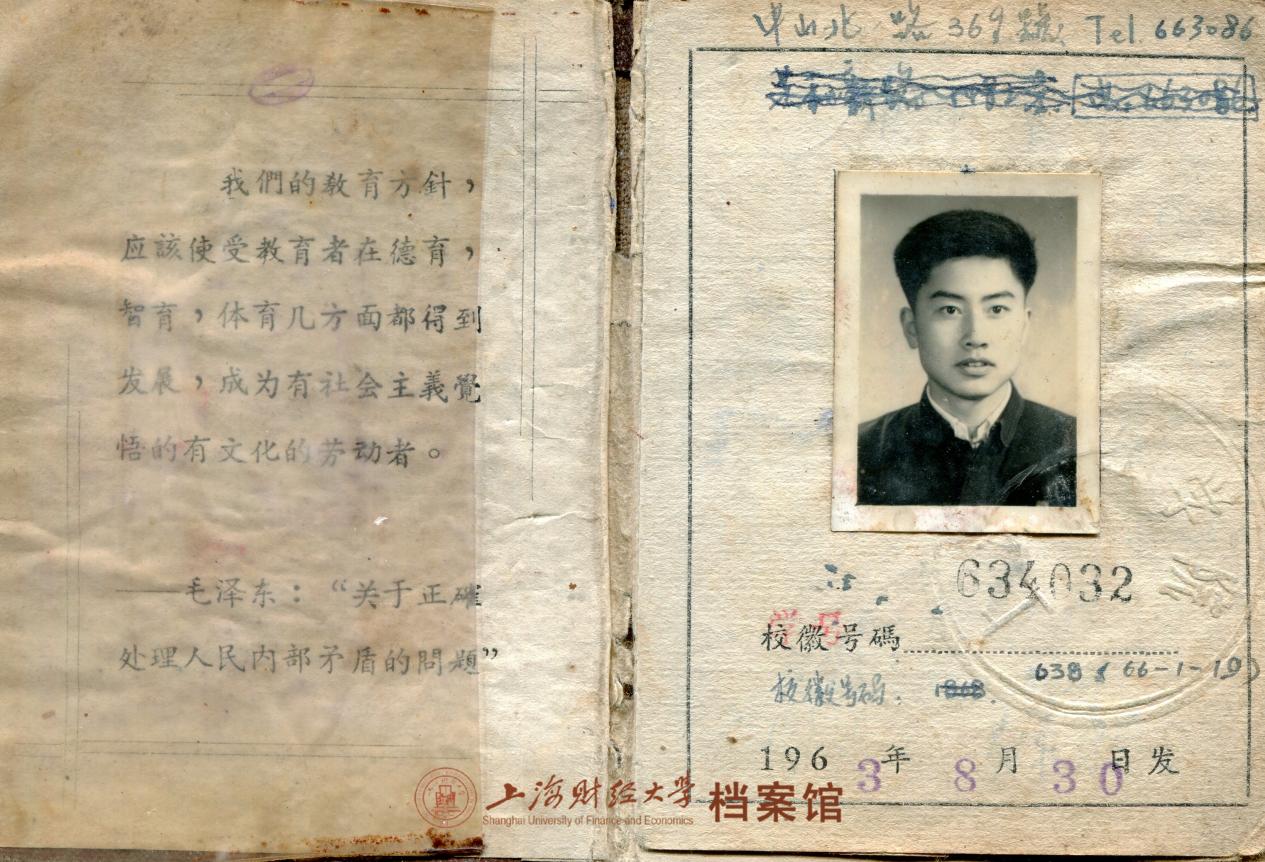 我們的敎育方針，
应該使受敎育者在德育，
智育，体育几方面都得到
发展，成为有社会主義覺
悟的有文化的劳动者。
——毛泽东：“关于正確
处理人民內部矛盾的問題”
中山北路369號 Tel 663086
634032
学号
校徽号碼
638 (66-1-19)
校徽号码：
1963年8月30日发
上海财经大学 档案馆
Shanghai University of Finance and Economics